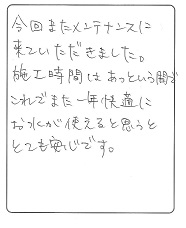 今回またメンテナンスに
来ていただきました。
施工時間はあっという間で
これでまた一年快適に
おフロが使えると思うと
とても安心です。